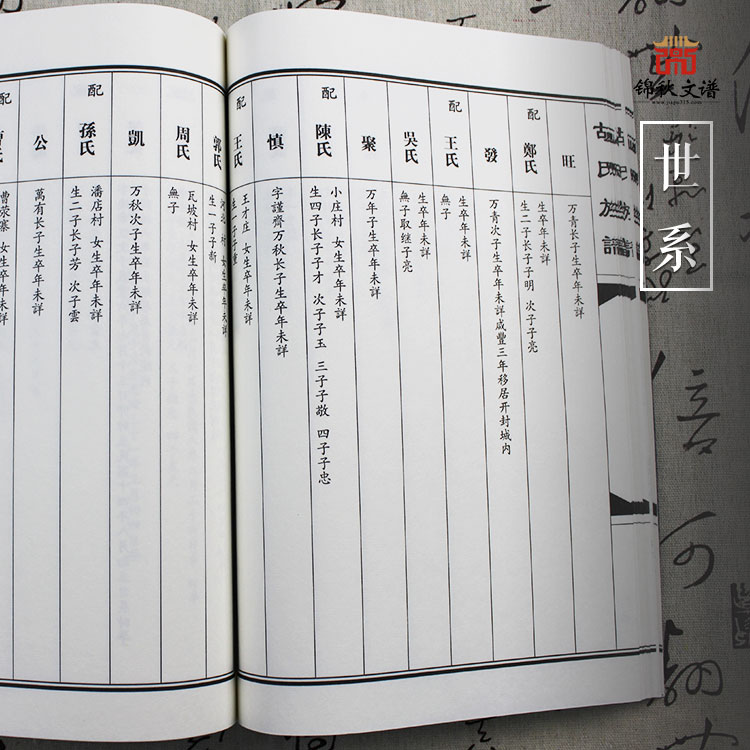 锦秋文谱
www.jiapu315.com
世系
旺
万青长子生卒年未詳
配 鄭氏
生卒年未詳
生二子长子子明 次子子亮
發
万青次子生卒年未詳咸豐三年移居开封城内
配 王氏
生卒年未詳
無子
吳氏
生卒年未詳
無子取继子亮
聚
万年子生卒年未詳
配 陳氏
小庄村 女生卒年未詳
生四子长子子才 次子子玉 三子子敬 四子子忠
慎
字謹齊万秋长子生卒年未詳
配 王氏
王才庄 女生卒年未詳
郭氏
村 女生卒年未詳
生一子子新
周氏
瓦坡村 女生卒年未詳
無子
凱
万秋次子生卒年未詳
配 孫氏
潘店村 女生卒年未詳
生二子长子芳 次子雲
公
萬有长子生卒年未詳
配 曹氏
曹菉寨 女生卒年未詳